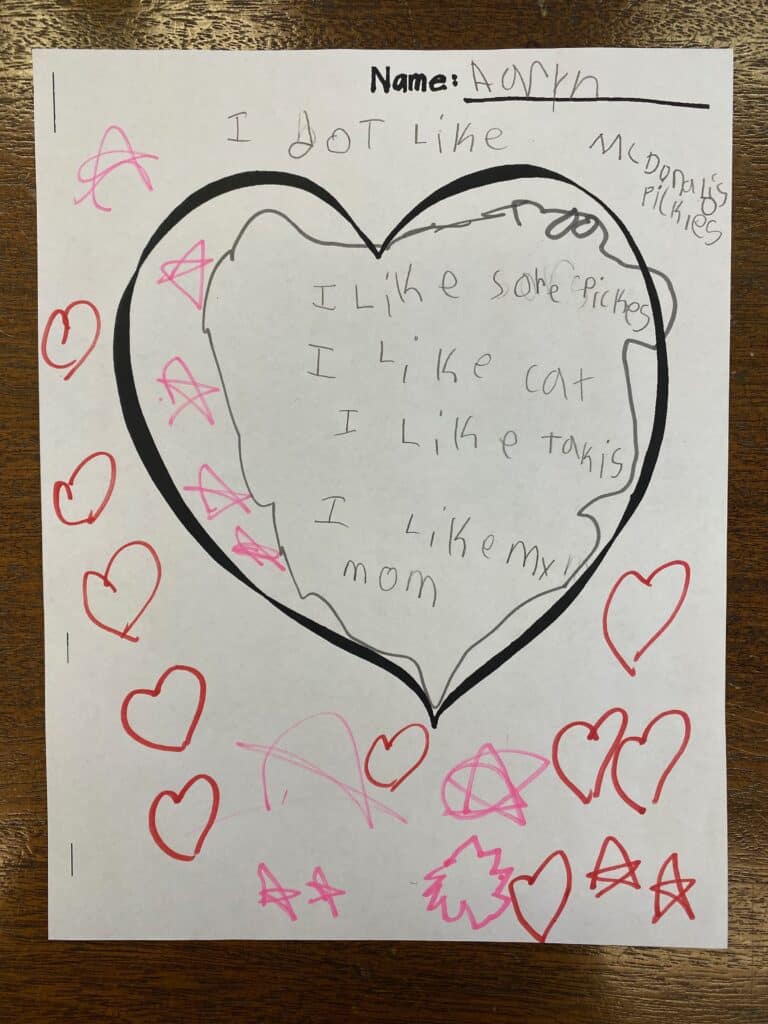 Name: Aaryn
I doT Like
McDonald's
Pickies
I Like sore pickes
I Like cat
I Like takis
I Like my
mom